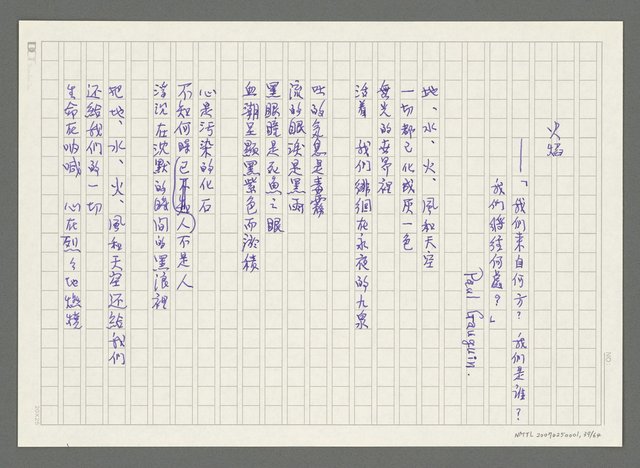 火焰
——「我們來自何方？我們是誰？
我們將往何處？」
Paul Gauguin.
地、水、火、風和天空
一切都已化成灰一色
無光的世界裡
活着 我們徘徊在永夜的九泉
吐的氣息是毒霧
流的眼淚是黑雨
黑眼睛是死魚之眼
血潮呈顯黑紫色而淤積
心是污染的化石
不知何時已不是人不是人
浮沉在沈默的時間的黑浪裡
把地、水、火、風和天空還給我們
還給我們的一切
生命在吶喊 心在烈々地燃燒
20×25
NMTL 20090250001, 39/64